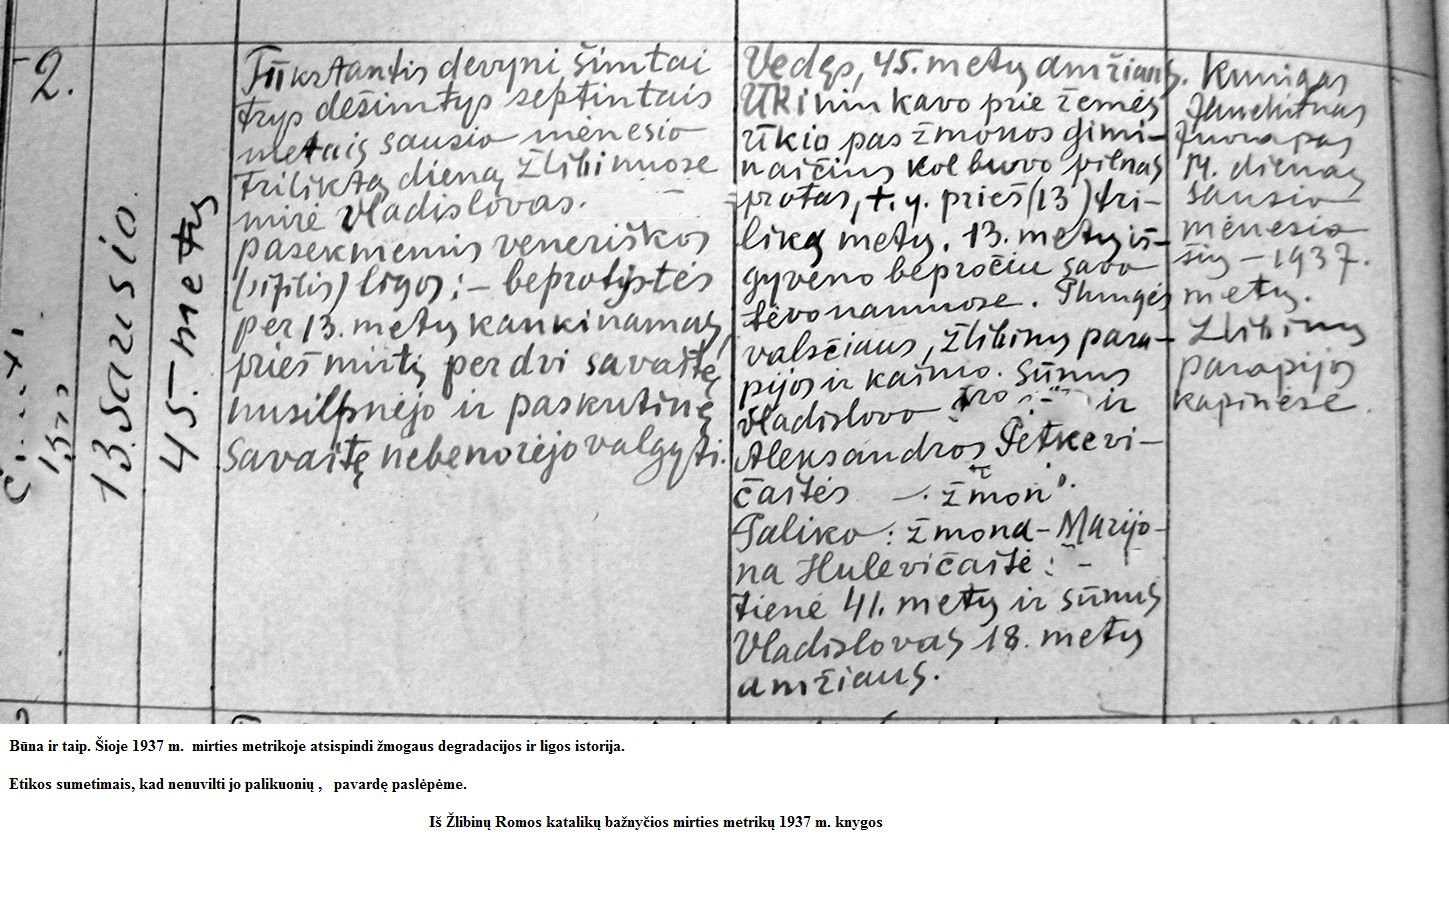 2.
13. Sausio.
45.-metų
Tūkstantis devyni šimtai
tryp dešimtyp septintais
metais sausio mėnesio
triliktą dieną Žlibinuose
mirė Vladislovas.
pasekmemis veneriškos
(sifilis) ligos; - beprotystės
per 13. metų kankinamas,
prieš mirtį per dvi savaitę
nusilpnėjo ir paskutinę
Savaitę nebenorėjo valgyti.
Vedęs, 45. metų amžiaus.
Ūkininkavo prie žemės
ūkio pas žmonos gimi-
naičius kol buvo pilnas
protas, t. y. prieš (13) tri-
liką metų. 13. metų iš-
gyveno bepročiu savo
tėvo namuose. Plungės
valsčiaus, Žlibinų para-
pijos ir kaimo. Sūnus
Vladislovo ir
Aleksandros Petkevi-
čaitės žmon
Paliko: žmona - Marijo-
na Hulevičaitė
tienė 41. metų ir sūnus
Vladislovas 18. metų
amžiaus.
Kunigas
Juozapas
14. dieną
sausio
mėnesio
šių - 1937.
metų.
Žlibinų
parapijos
kapinėse.
Būna ir taip. Šioje 1937 m. mirties metrikoje atsispindi žmogaus degradacijos ir ligos istorija.
Etikos sumetimais, kad nenuvilti jo palikuonių , pavardę paslėpėme.
Iš Žlibinų Romos katalikų bažnyčios mirties metrikų 1937 m. knygos